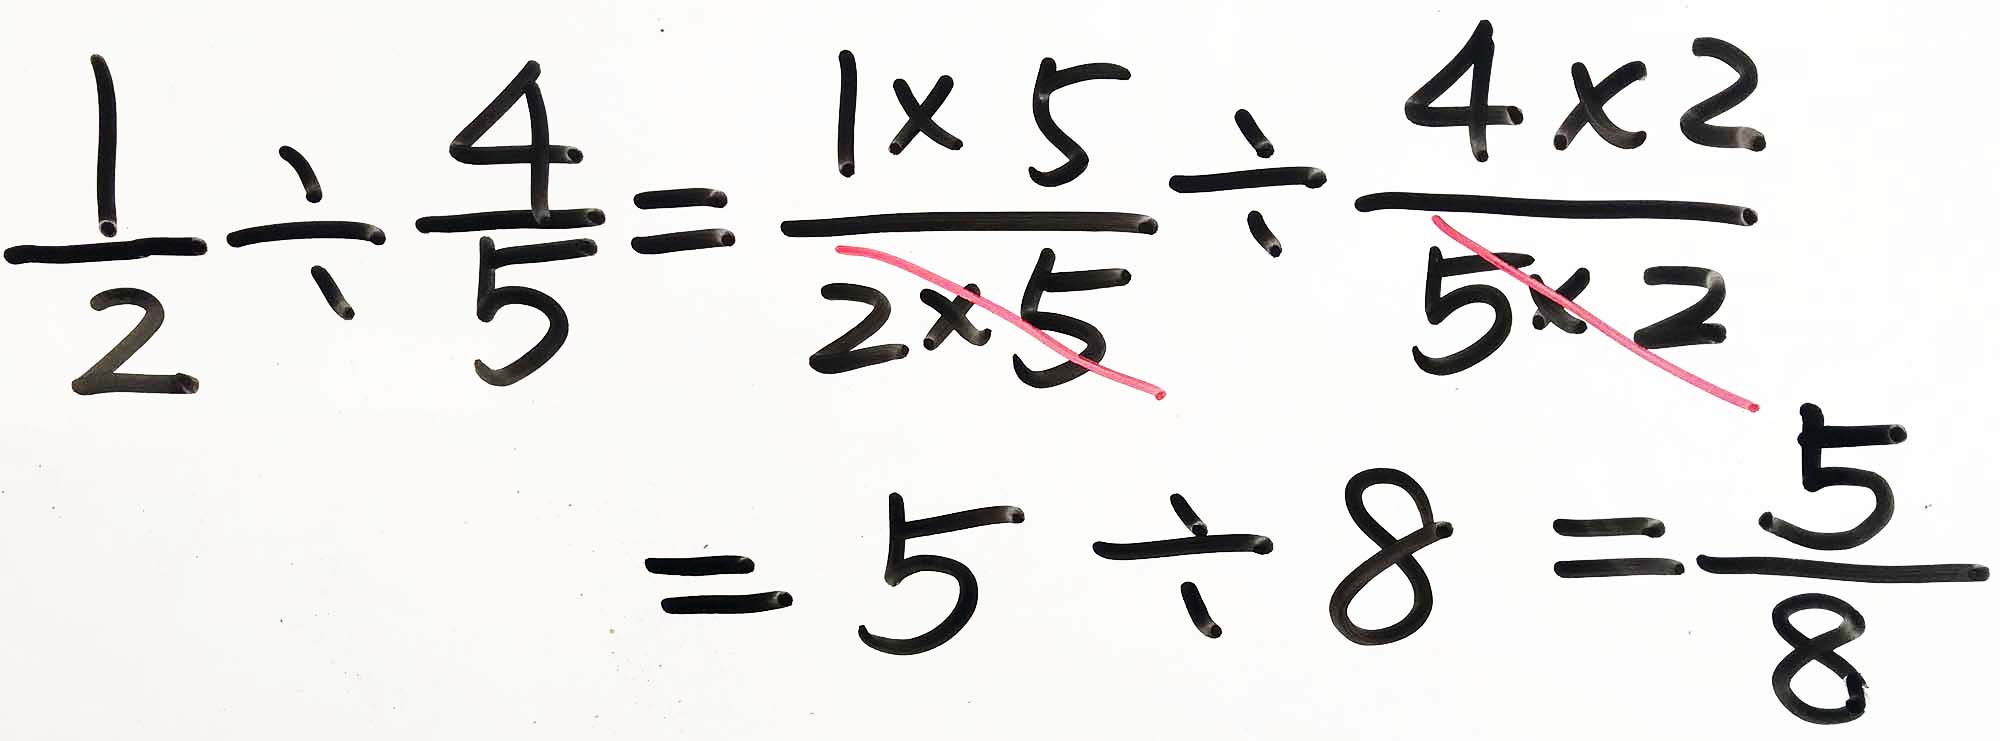 1/2 ÷ 4/5 = 1×5/2×5 ÷ 4×2/5×2
= 5 ÷ 8 = 5/8